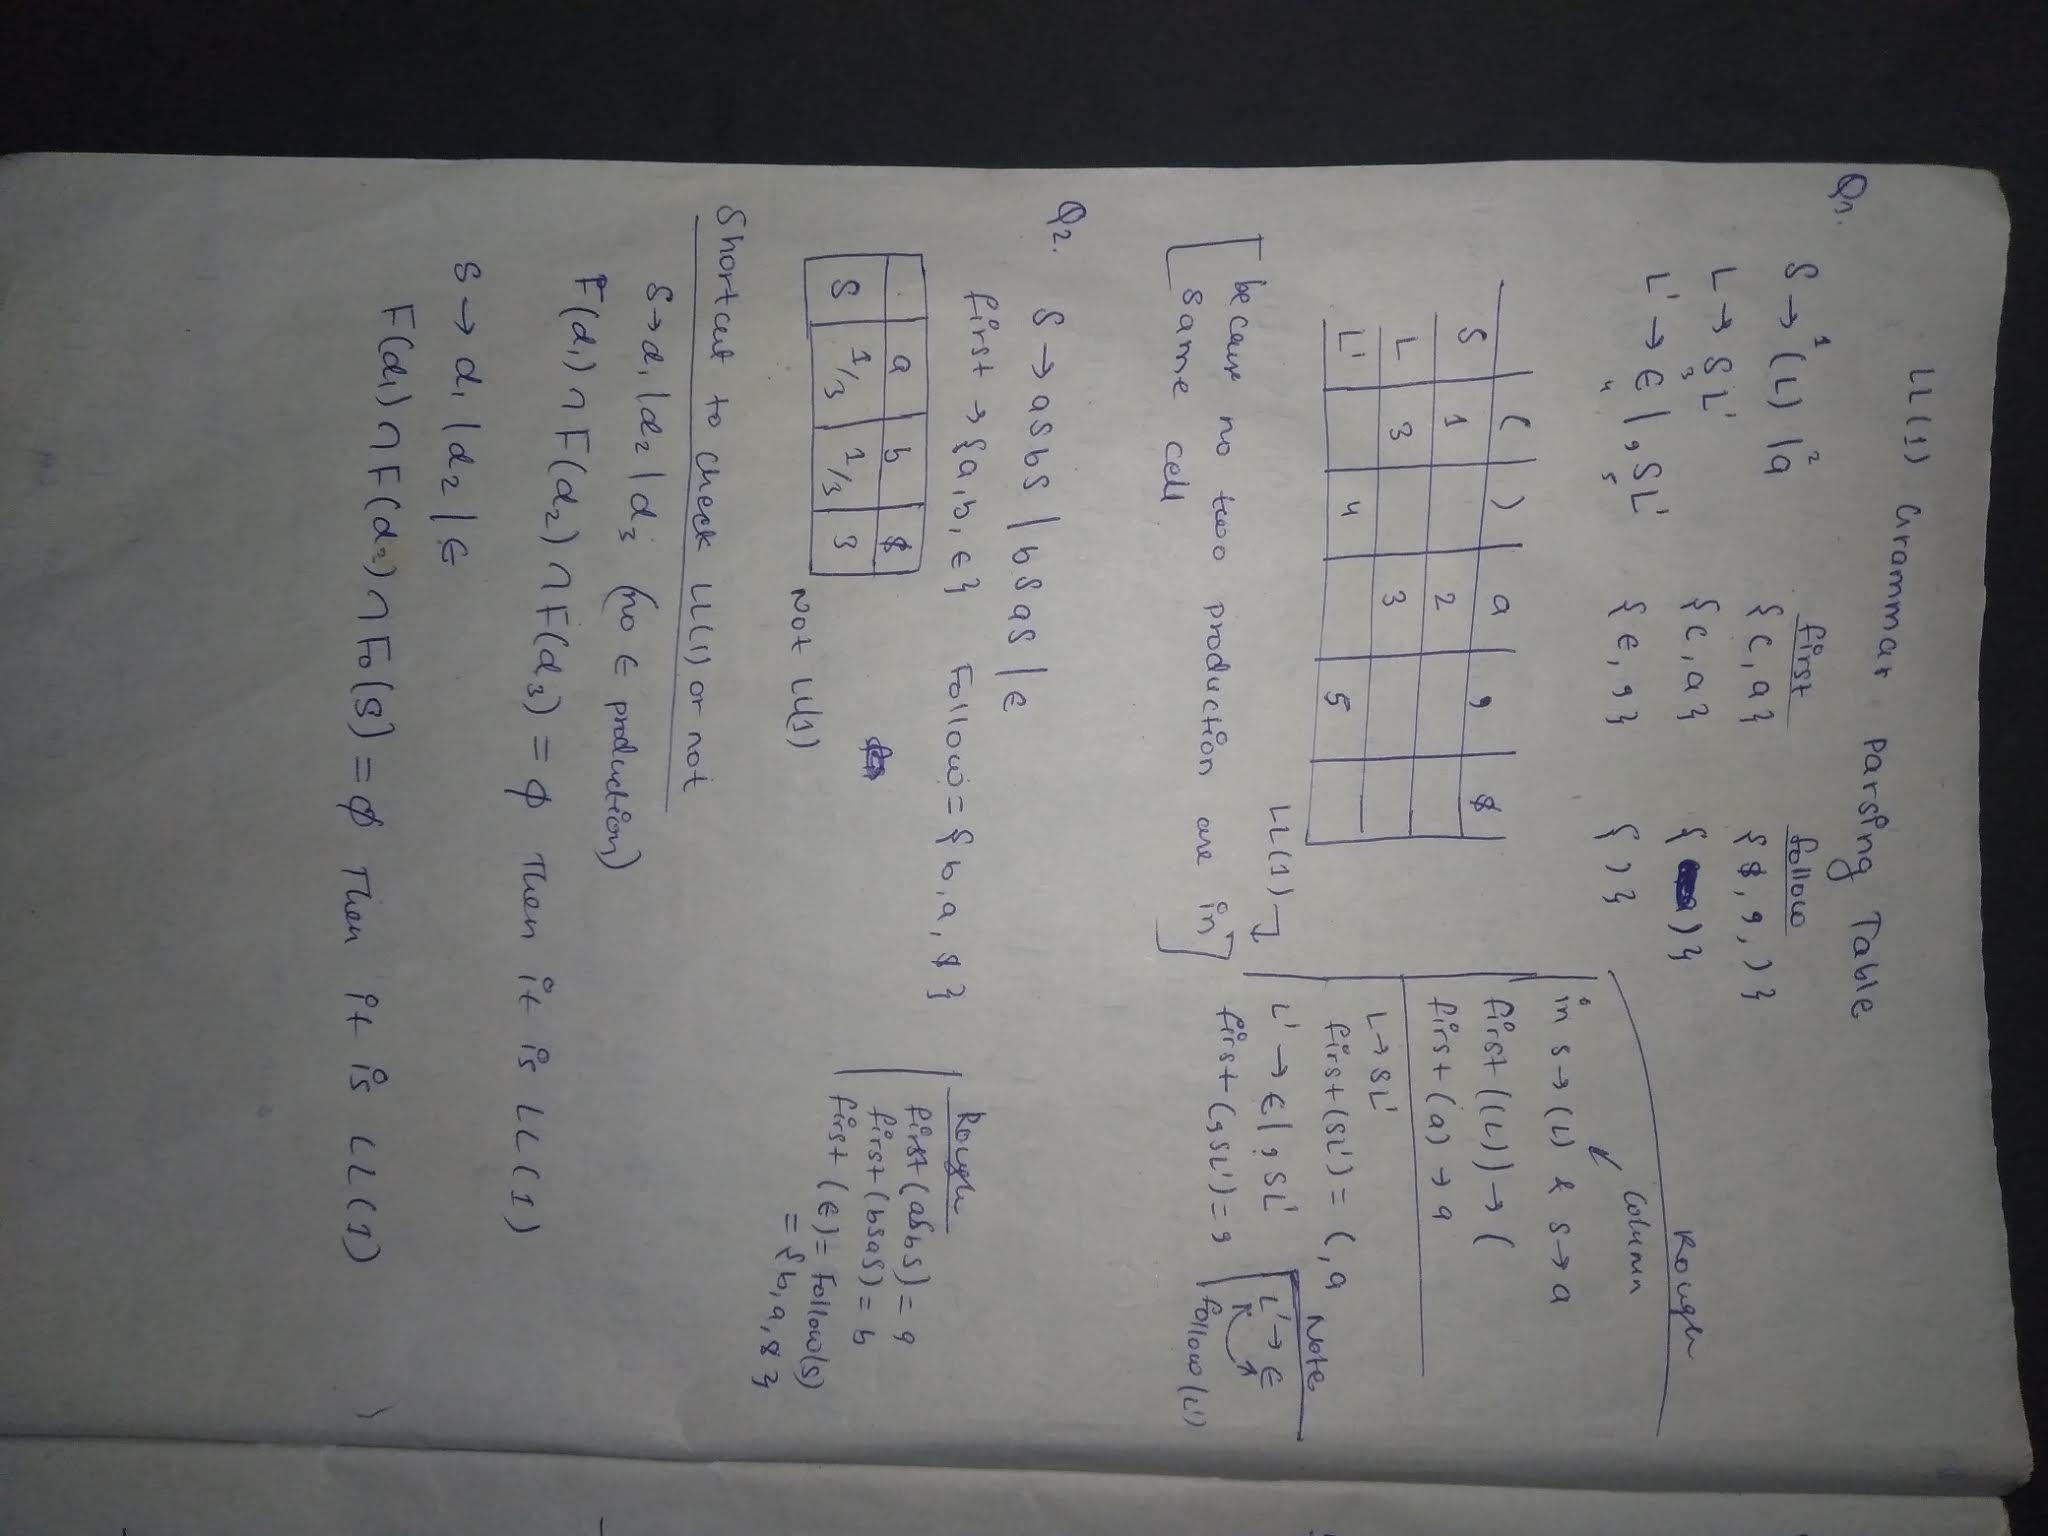 LL(1) Grammar Parsing Table
Q1.
S → (L) | a
1 2
first
follow
{ (, a }
{ $, , , ) }
L → SL'
3
{ (, a }
{ ) }
L' → ∈ | , SL'
4 5
{ ∈, , }
{ ) }
( ) a , $
S 1 2
L 3 3
L' 4 5
LL(1)
[ because no two production are in
same cell ]
Rough
Column
in S → (L) & S → a
first((L)) → (
first(a) → a
L → SL'
first(SL') = (, a
L' → ∈ | , SL'
first(,SL') = ,
Note
L' → ∈
follow(L')
Q2.
S → aSbS | bSaS | ∈
first → {a, b, ∈} Follow = {b, a, $}
a b $
S 1/3 1/3 3
Not LL(1)
Rough
first(aSbS) = a
first(bSaS) = b
first(∈) = Follow(S)
= {b, a, $}
Shortcut to check LL(1) or not
S → α1 | α2 | α3 (no ∈ production)
F(α1) ∩ F(α2) ∩ F(α3) = ϕ Then it is LL(1)
S → α1 | α2 | ∈
F(α1) ∩ F(α2) ∩ Fo(S) = ϕ Then it is LL(1)